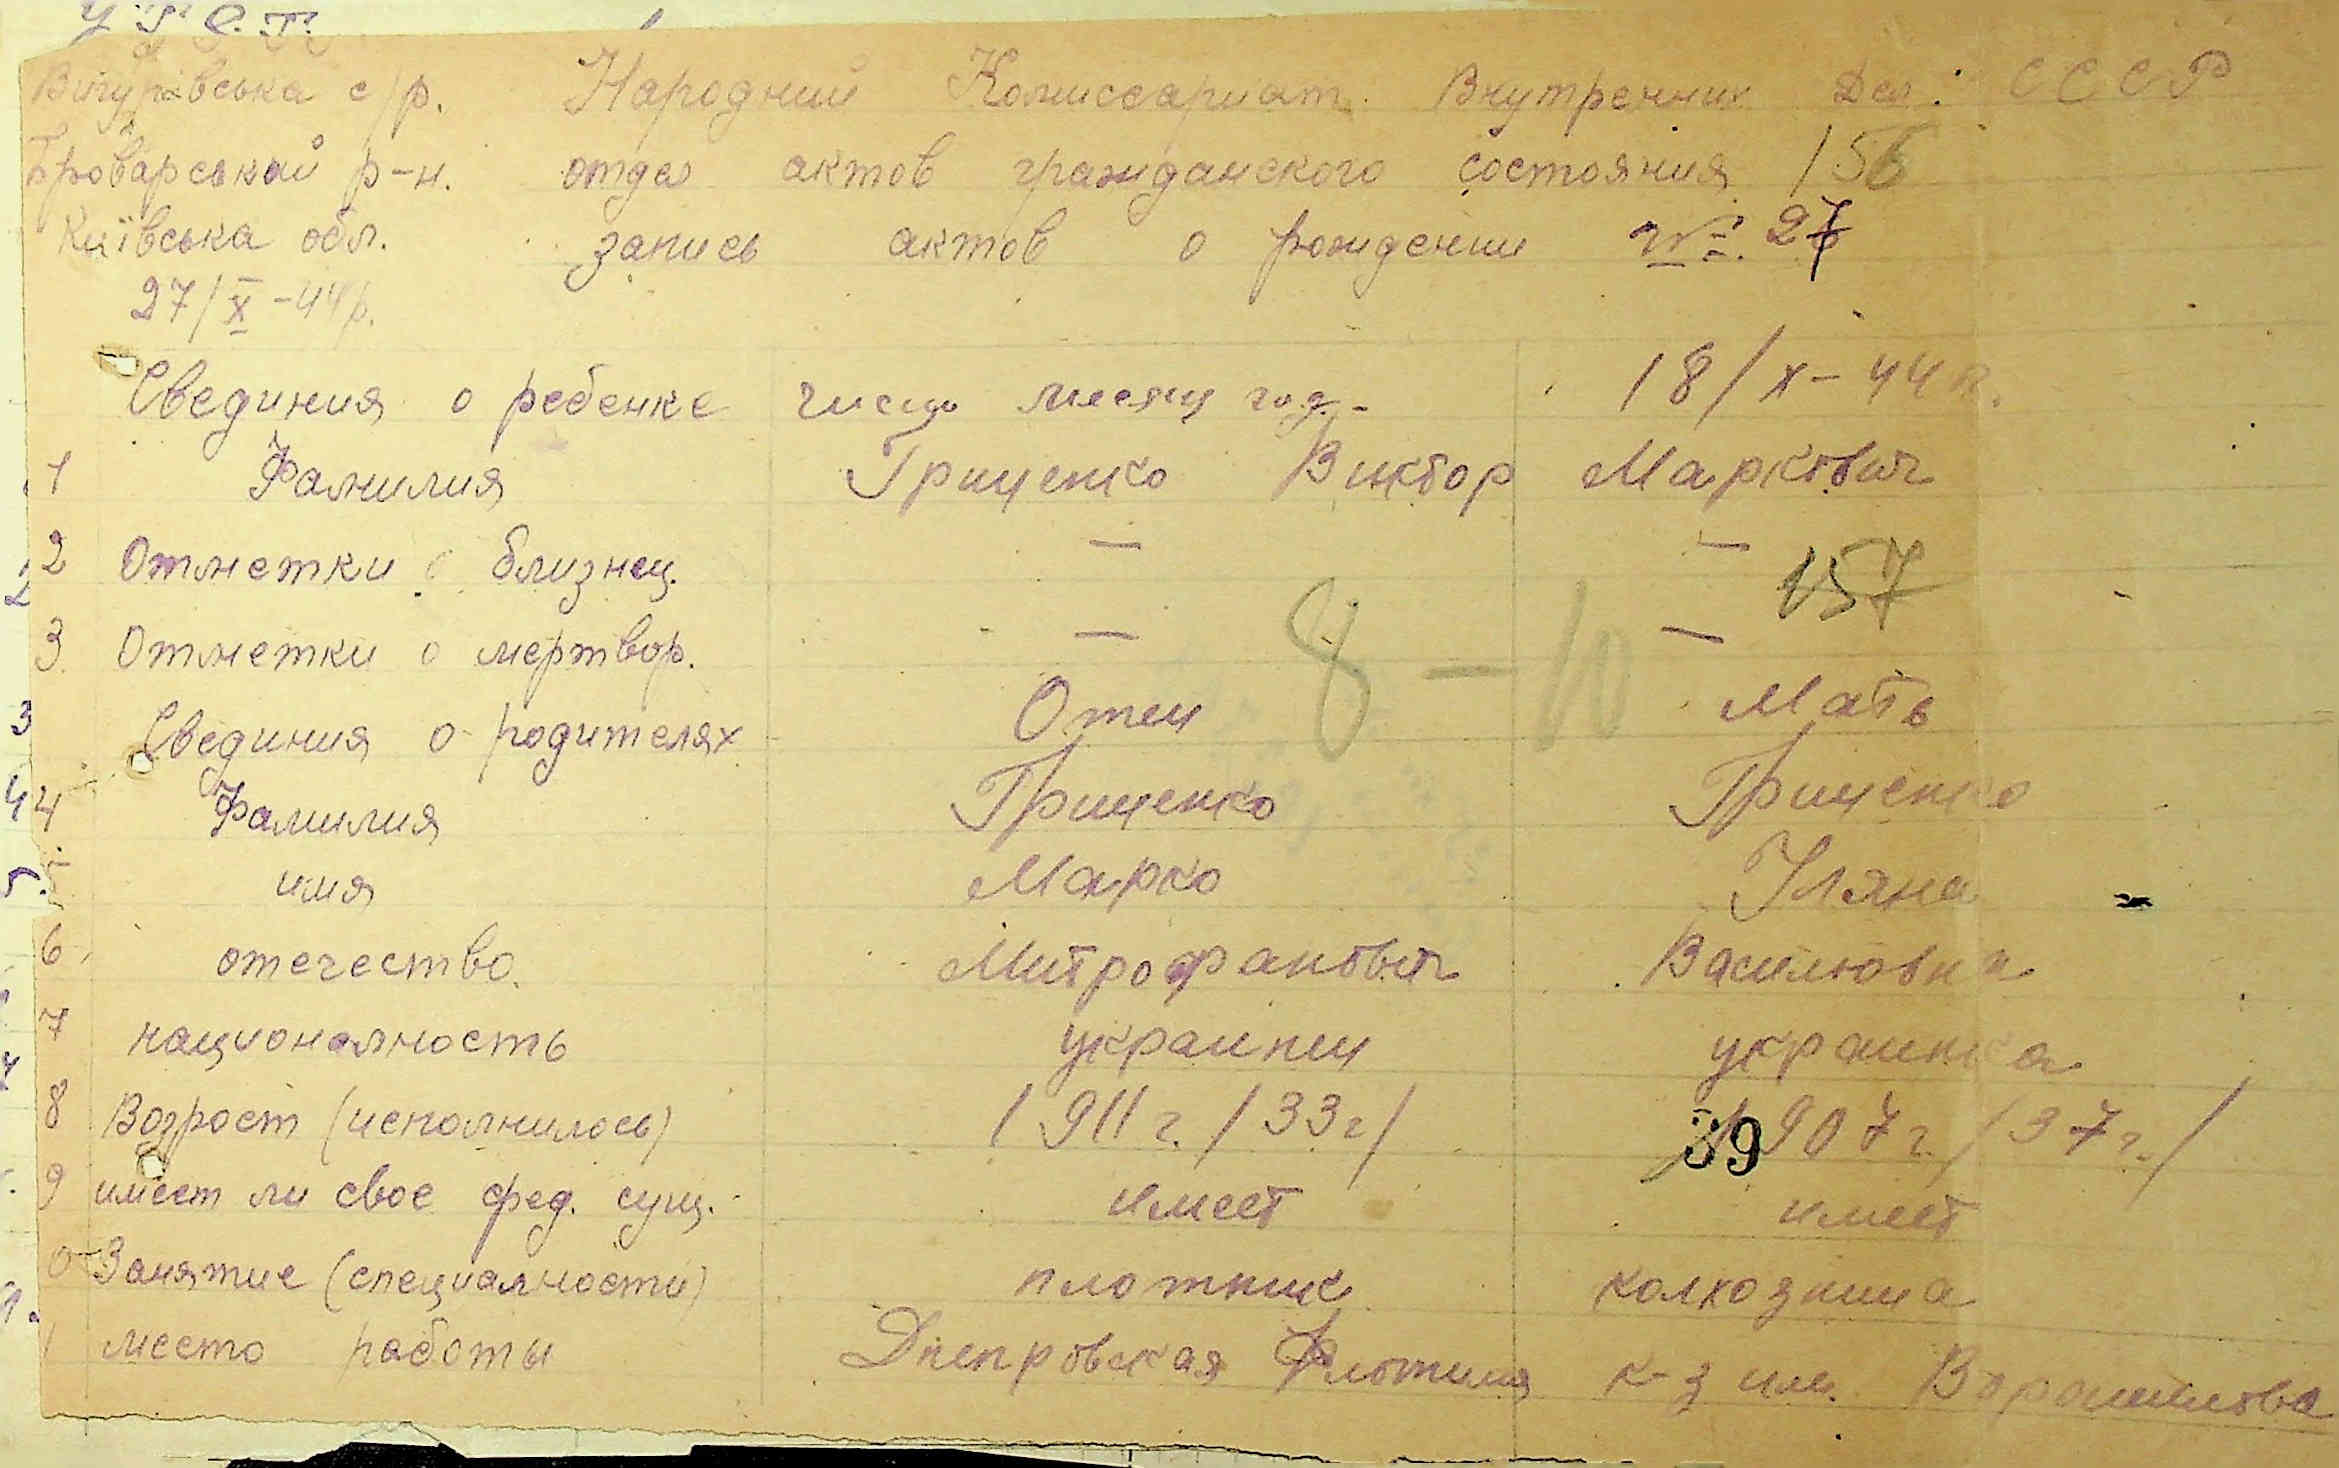 У.Р.С.Р.
Вігурівська с/р. Народний Комиссариат Внутренних Дел. СССР
Броварський р-н. отдел актов гражданского состояния 156
Київська обл. запись актов о рождении №. 27
27/X-44р.
Свединия о ребенке число месяц год. - 18/X-44г.
1 Фамилия Гриценко Виктор Маркович
2 Отметки о близнец. — —
157
3 Отметки о мертвор. — —
8 — 10
Свединия о родителях Отец Мать
4 Фамилия Гриценко Гриценко
5 имя Марко Уляна
6 отечество. Митрофанович Василювна
7 националность украинец украинка
8 Возрост (исполнилось) 1911 г. /33 г/ 1907 г. /37 г./
39
9 имеет ли свое сред. сущ. имеет имеет
0 Занятие (специалности) плотник колхозница
1 место работы Днепровская Флотилия к-з им. Ворошилова